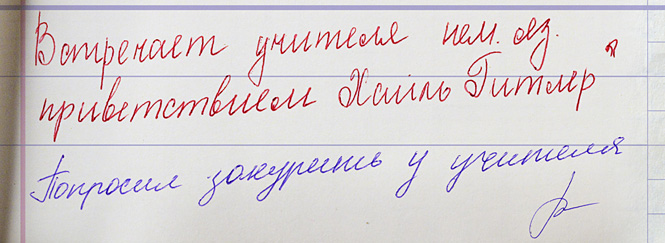 Встречает учителя нем. яз.
приветствием Хайль Гитлер"
Попросил закурить у учителя